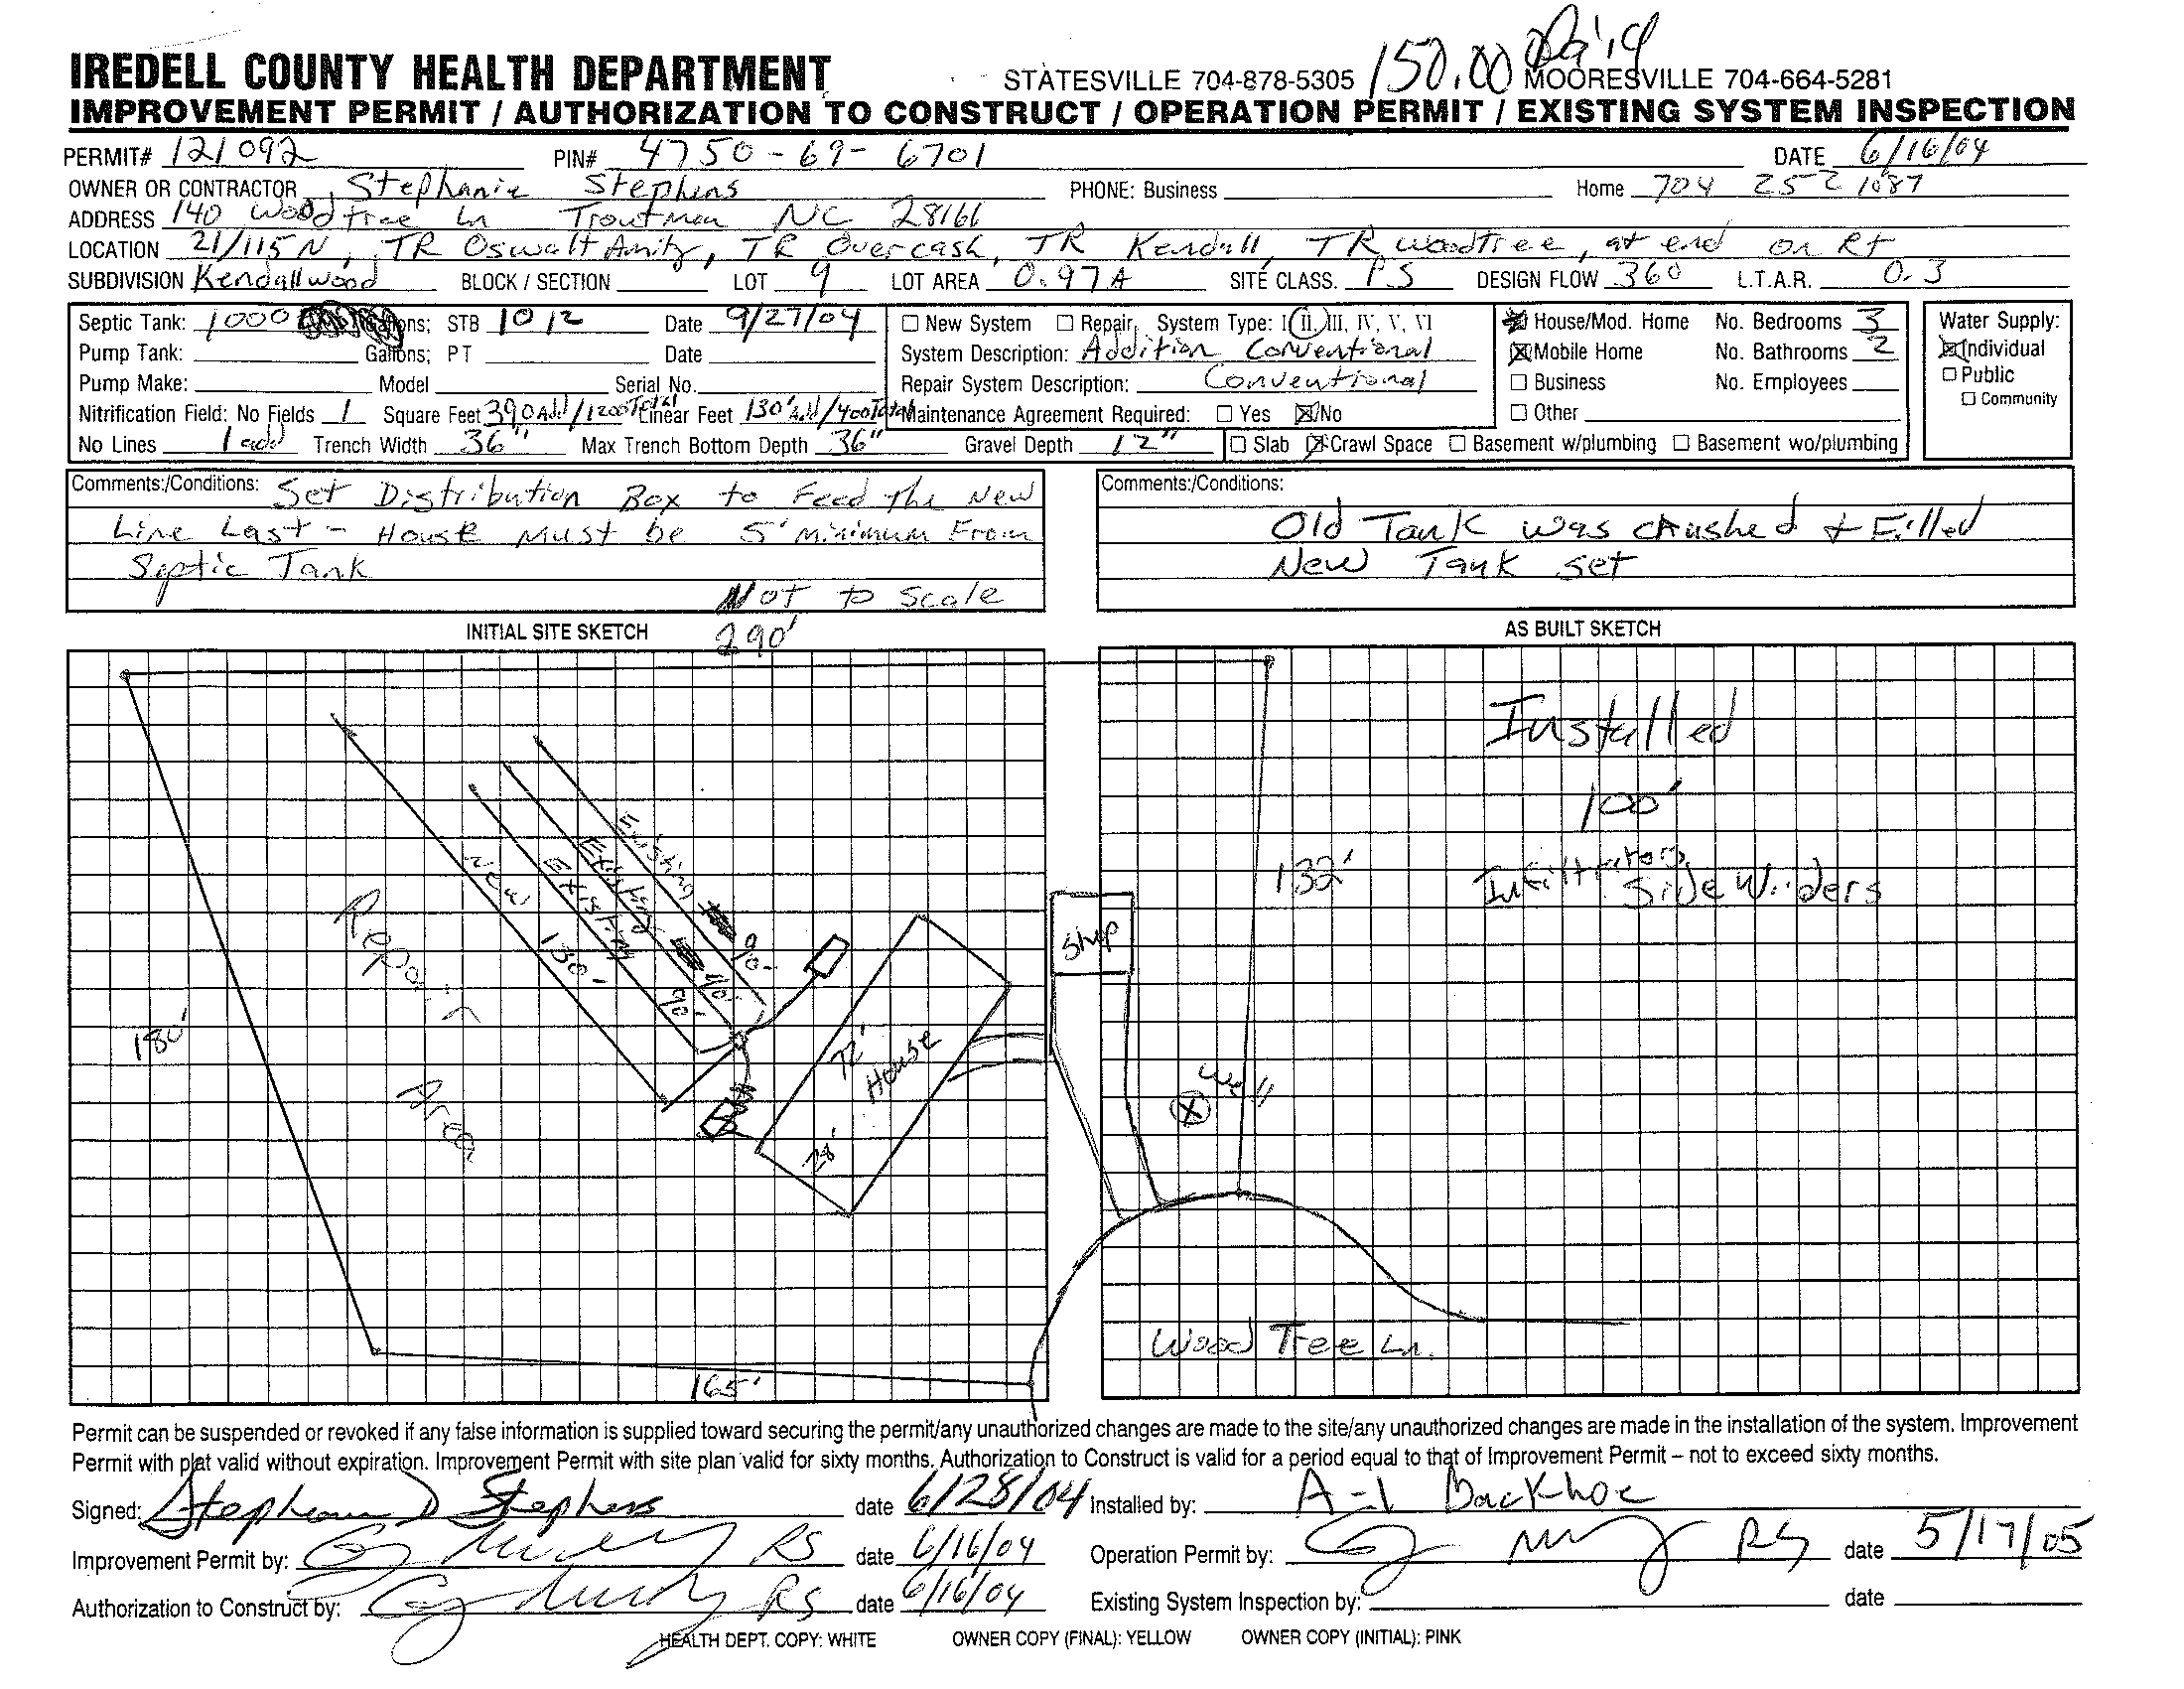 150.00 Paid
IREDELL COUNTY HEALTH DEPARTMENT STATESVILLE 704-878-5305 MOORESVILLE 704-664-5281
IMPROVEMENT PERMIT / AUTHORIZATION TO CONSTRUCT / OPERATION PERMIT / EXISTING SYSTEM INSPECTION
PERMIT# 121092 PIN# 4750-69-6701 DATE 6/16/04
OWNER OR CONTRACTOR Stephanie Stephens PHONE: Business Home 704 252 1087
ADDRESS 140 Woodtree Ln Troutman NC 28166
LOCATION 21/115 N, TR Oswalt Amity, TR Overcash, TR Kendall, TR Woodtree, at end on Rt
SUBDIVISION Kendallwood BLOCK / SECTION LOT 9 LOT AREA 0.97A SITE CLASS. PS DESIGN FLOW 360 L.T.A.R. 0.3
Septic Tank: 1000 Gallons; STB 1012 Date 9/27/04 □ New System □ Repair System Type: I, II, III, IV, V, VI ☒ House/Mod. Home No. Bedrooms 3 Water Supply:
Pump Tank: Gallons; PT Date System Description: Addition Conventional ☒ Mobile Home No. Bathrooms 2 ☒ Individual
Pump Make: Model Serial No. Repair System Description: Conventional □ Business No. Employees □ Public
Nitrification Field: No Fields 1 Square Feet 390 Add/1200 Total Linear Feet 130' Add/400 Total Maintenance Agreement Required: □ Yes ☒ No □ Other □ Community
No Lines 1 add Trench Width 36" Max Trench Bottom Depth 36" Gravel Depth 12" □ Slab ☒ Crawl Space □ Basement w/plumbing □ Basement wo/plumbing
Comments:/Conditions: Set Distribution Box to Feed the New
Line Last - House Must be 5' Minimum From
Septic Tank
Not to Scale
Comments:/Conditions:
Old Tank was crushed & Filled
New Tank set
INITIAL SITE SKETCH 290' AS BUILT SKETCH
Installed
100'
Infiltrators
Side Winders
132'
Existing 90'
Existing 90'
Existing 90'
New 130'
Repair
Area
180'
72'
House
28'
Shop
Well
165'
Wood Tree Ln.
Permit can be suspended or revoked if any false information is supplied toward securing the permit/any unauthorized changes are made to the site/any unauthorized changes are made in the installation of the system. Improvement
Permit with plat valid without expiration. Improvement Permit with site plan valid for sixty months. Authorization to Construct is valid for a period equal to that of Improvement Permit – not to exceed sixty months.
Signed: Stephanie D Stephens date 6/28/04 Installed by: A-1 Backhoe
Improvement Permit by: RS date 6/16/04 Operation Permit by: RS date 5/17/05
Authorization to Construct by: RS date 6/16/04 Existing System Inspection by: date
HEALTH DEPT. COPY: WHITE OWNER COPY (FINAL): YELLOW OWNER COPY (INITIAL): PINK